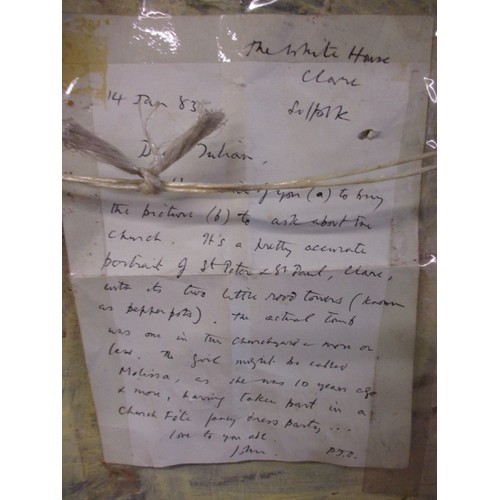 The White House
Clare
Suffolk
14 Jan 83
Julian,
if you (a) to buy
the picture (b) to ask about the
church. It's a pretty accurate
portrait of St Peter & St Paul, Clare,
with its two little rood towers (known
as pepper pots). The actual tomb
was one in the churchyard & more or
less. The girl might be called
Melissa, as she was 10 years ago
& more, having taken part in a
Church Fête fancy dress party...
love to you all.
John.
P.T.O.